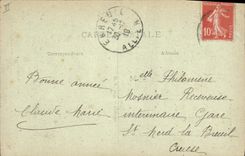 II
CARTE POSTALE
Correspondance
Adresse
10
Bonne année
Claude Marie
Philomène
Mosnier Receveuse
intérimaire Gare
St Merd la Breuil
Creuse